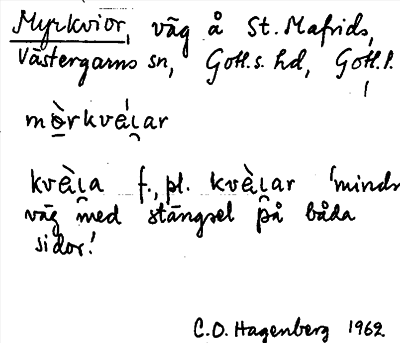 Myrkvior, väg å St. Mafrids,
Västergarns sn, Gotl. s. hd, Gotl. l.
mòrkvéi̯ar
kvèi̯a f., pl. kvèi̯ar 'mindre
väg med stängsel på båda
sidor.'
C.O. Hagenberg 1962